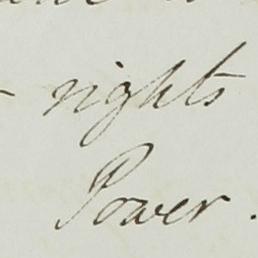 - rights
Power.